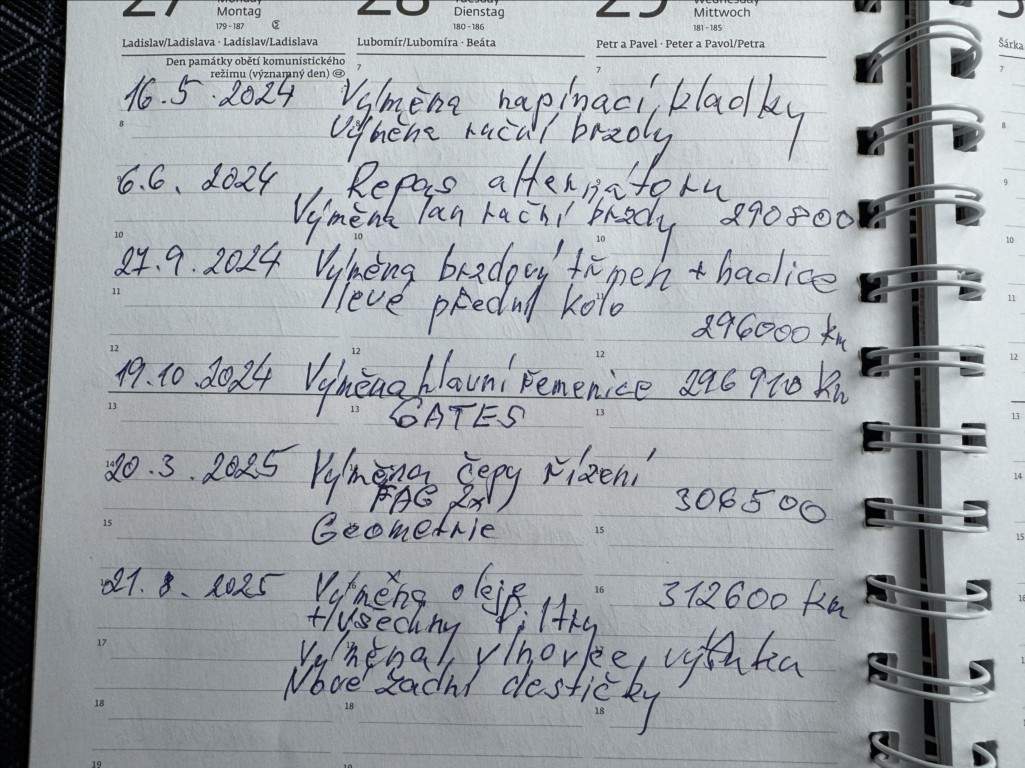 27 28 29
Monday Tuesday Wednesday
Montag Dienstag Mittwoch
179 - 187 180 - 186 181 - 185
Ladislav/Ladislava · Ladislav/Ladislava Lubomír/Lubomíra · Beáta Petr a Pavel · Peter a Pavol/Petra Šárka
Den památky obětí komunistického
režimu (významný den)
7 7 7
16.5.2024 Výměna napínací kladky
8 8
Výměna ruční brzdy
6.6. 2024 Repas alternátoru 9
Výměna lan ruční brzdy 290800
10 10 10 10
27.9.2024 Výměna brzdový třmen + hadice
11 11
levé přední kolo
296000 km
12 12 12 12
19.10.2024 Výměna hlavní řemenice 296910 km
13 13 13 13
GATES
20.3.2025 Výměna čepy řízení 14
FAG 2x 306500
15 15 15
Geometrie
21.8.2025 Výměna oleje 16 312600 km 16
+ všechny filtry
17 17
Výměna vlnovce výfuku
Nové zadní destičky
18 18 18
19